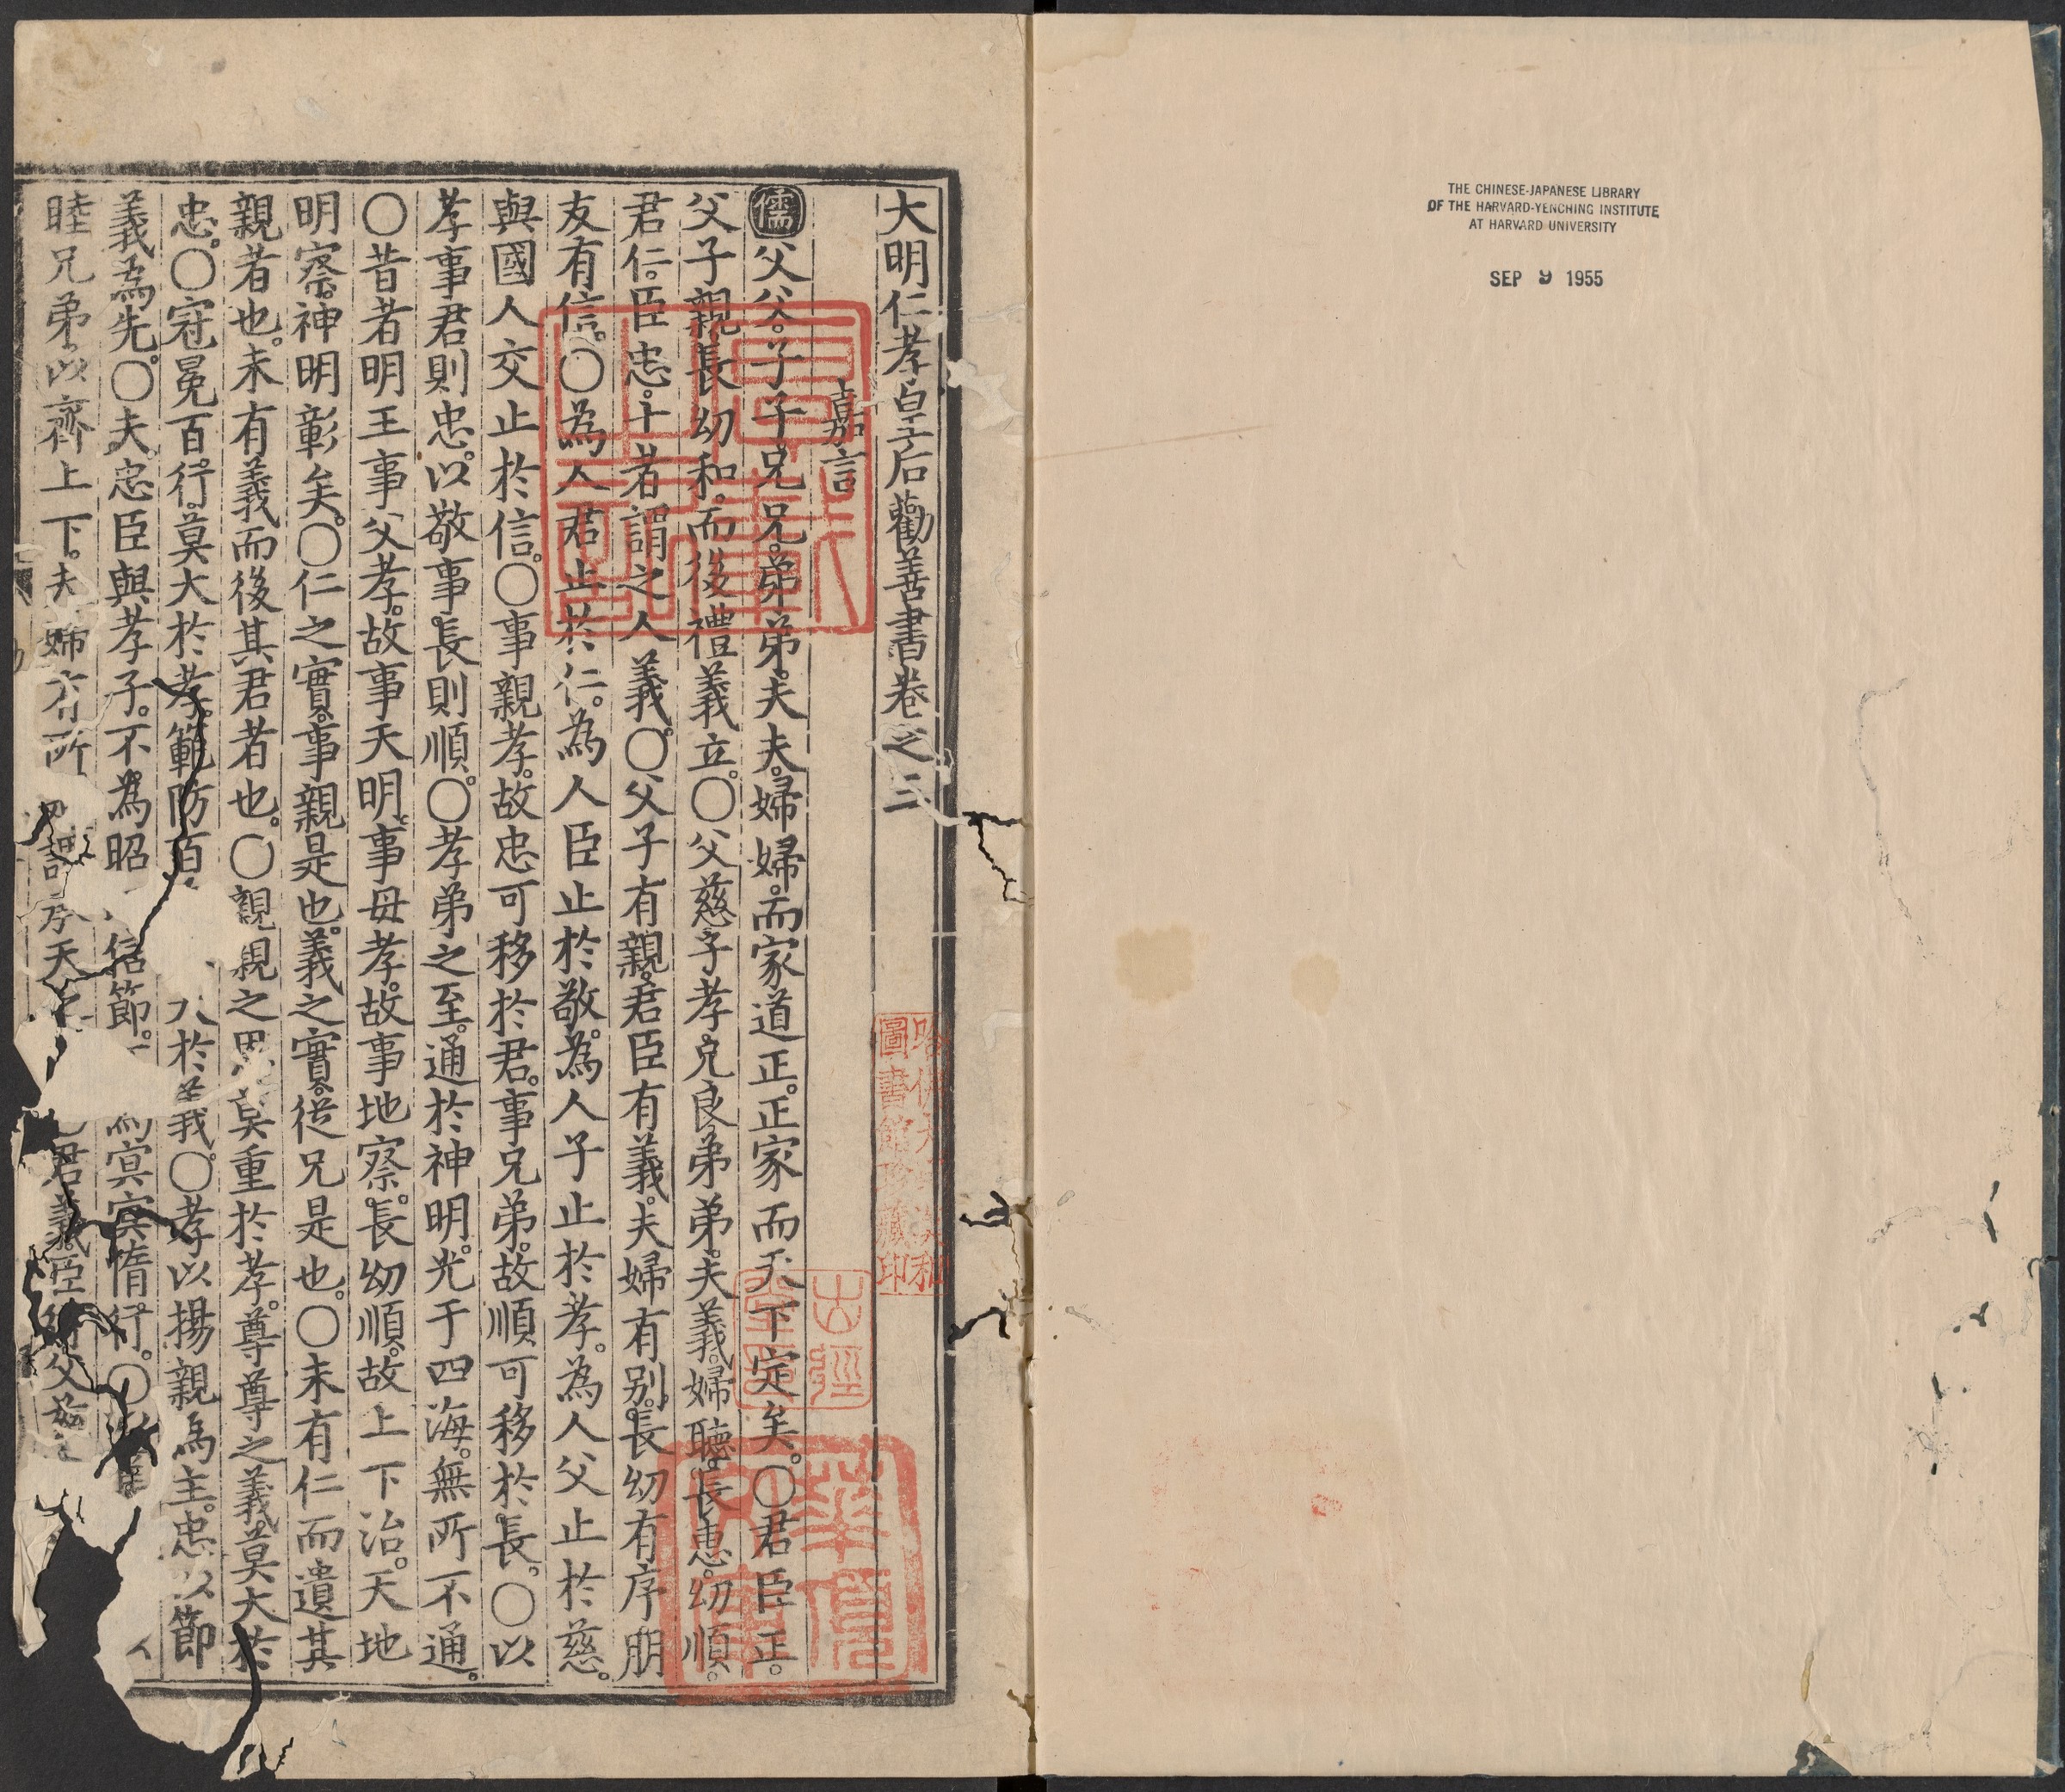 THE CHINESE-JAPANESE LIBRARY
OF THE HARVARD-YENCHING INSTITUTE
AT HARVARD UNIVERSITY
SEP 9 1955
大明仁孝皇后勸善書卷之三
嘉言
儒父父子子兄兄弟弟夫夫婦婦而家道正正家而天下定矣○君臣正
父子親長幼和而後禮義立○父慈子孝兄良弟弟夫義婦聽長惠幼順
君仁臣忠十者謂之人義○父子有親君臣有義夫婦有別長幼有序朋
友有信○為人君止於仁為人臣止於敬為人子止於孝為人父止於慈
與國人交止於信○事親孝故忠可移於君事兄弟故順可移於長○以
孝事君則忠以敬事長則順○孝弟之至通於神明光于四海無所不通
○昔者明王事父孝故事天明事母孝故事地察長幼順故上下治天地
明察神明彰矣○仁之實事親是也義之實從兄是也○未有仁而遺其
親者也未有義而後其君者也○親親之恩莫重於孝尊尊之義莫大於
忠○冠冕百行莫大於孝範防百於義○孝以揚親為主忠以節
義為先○夫忠臣與孝子不為昭信節為冥冥惰行○
睦兄弟以齊上下夫婦有所天君義臣父慈
哈佛大學漢和
圖書館珍藏印